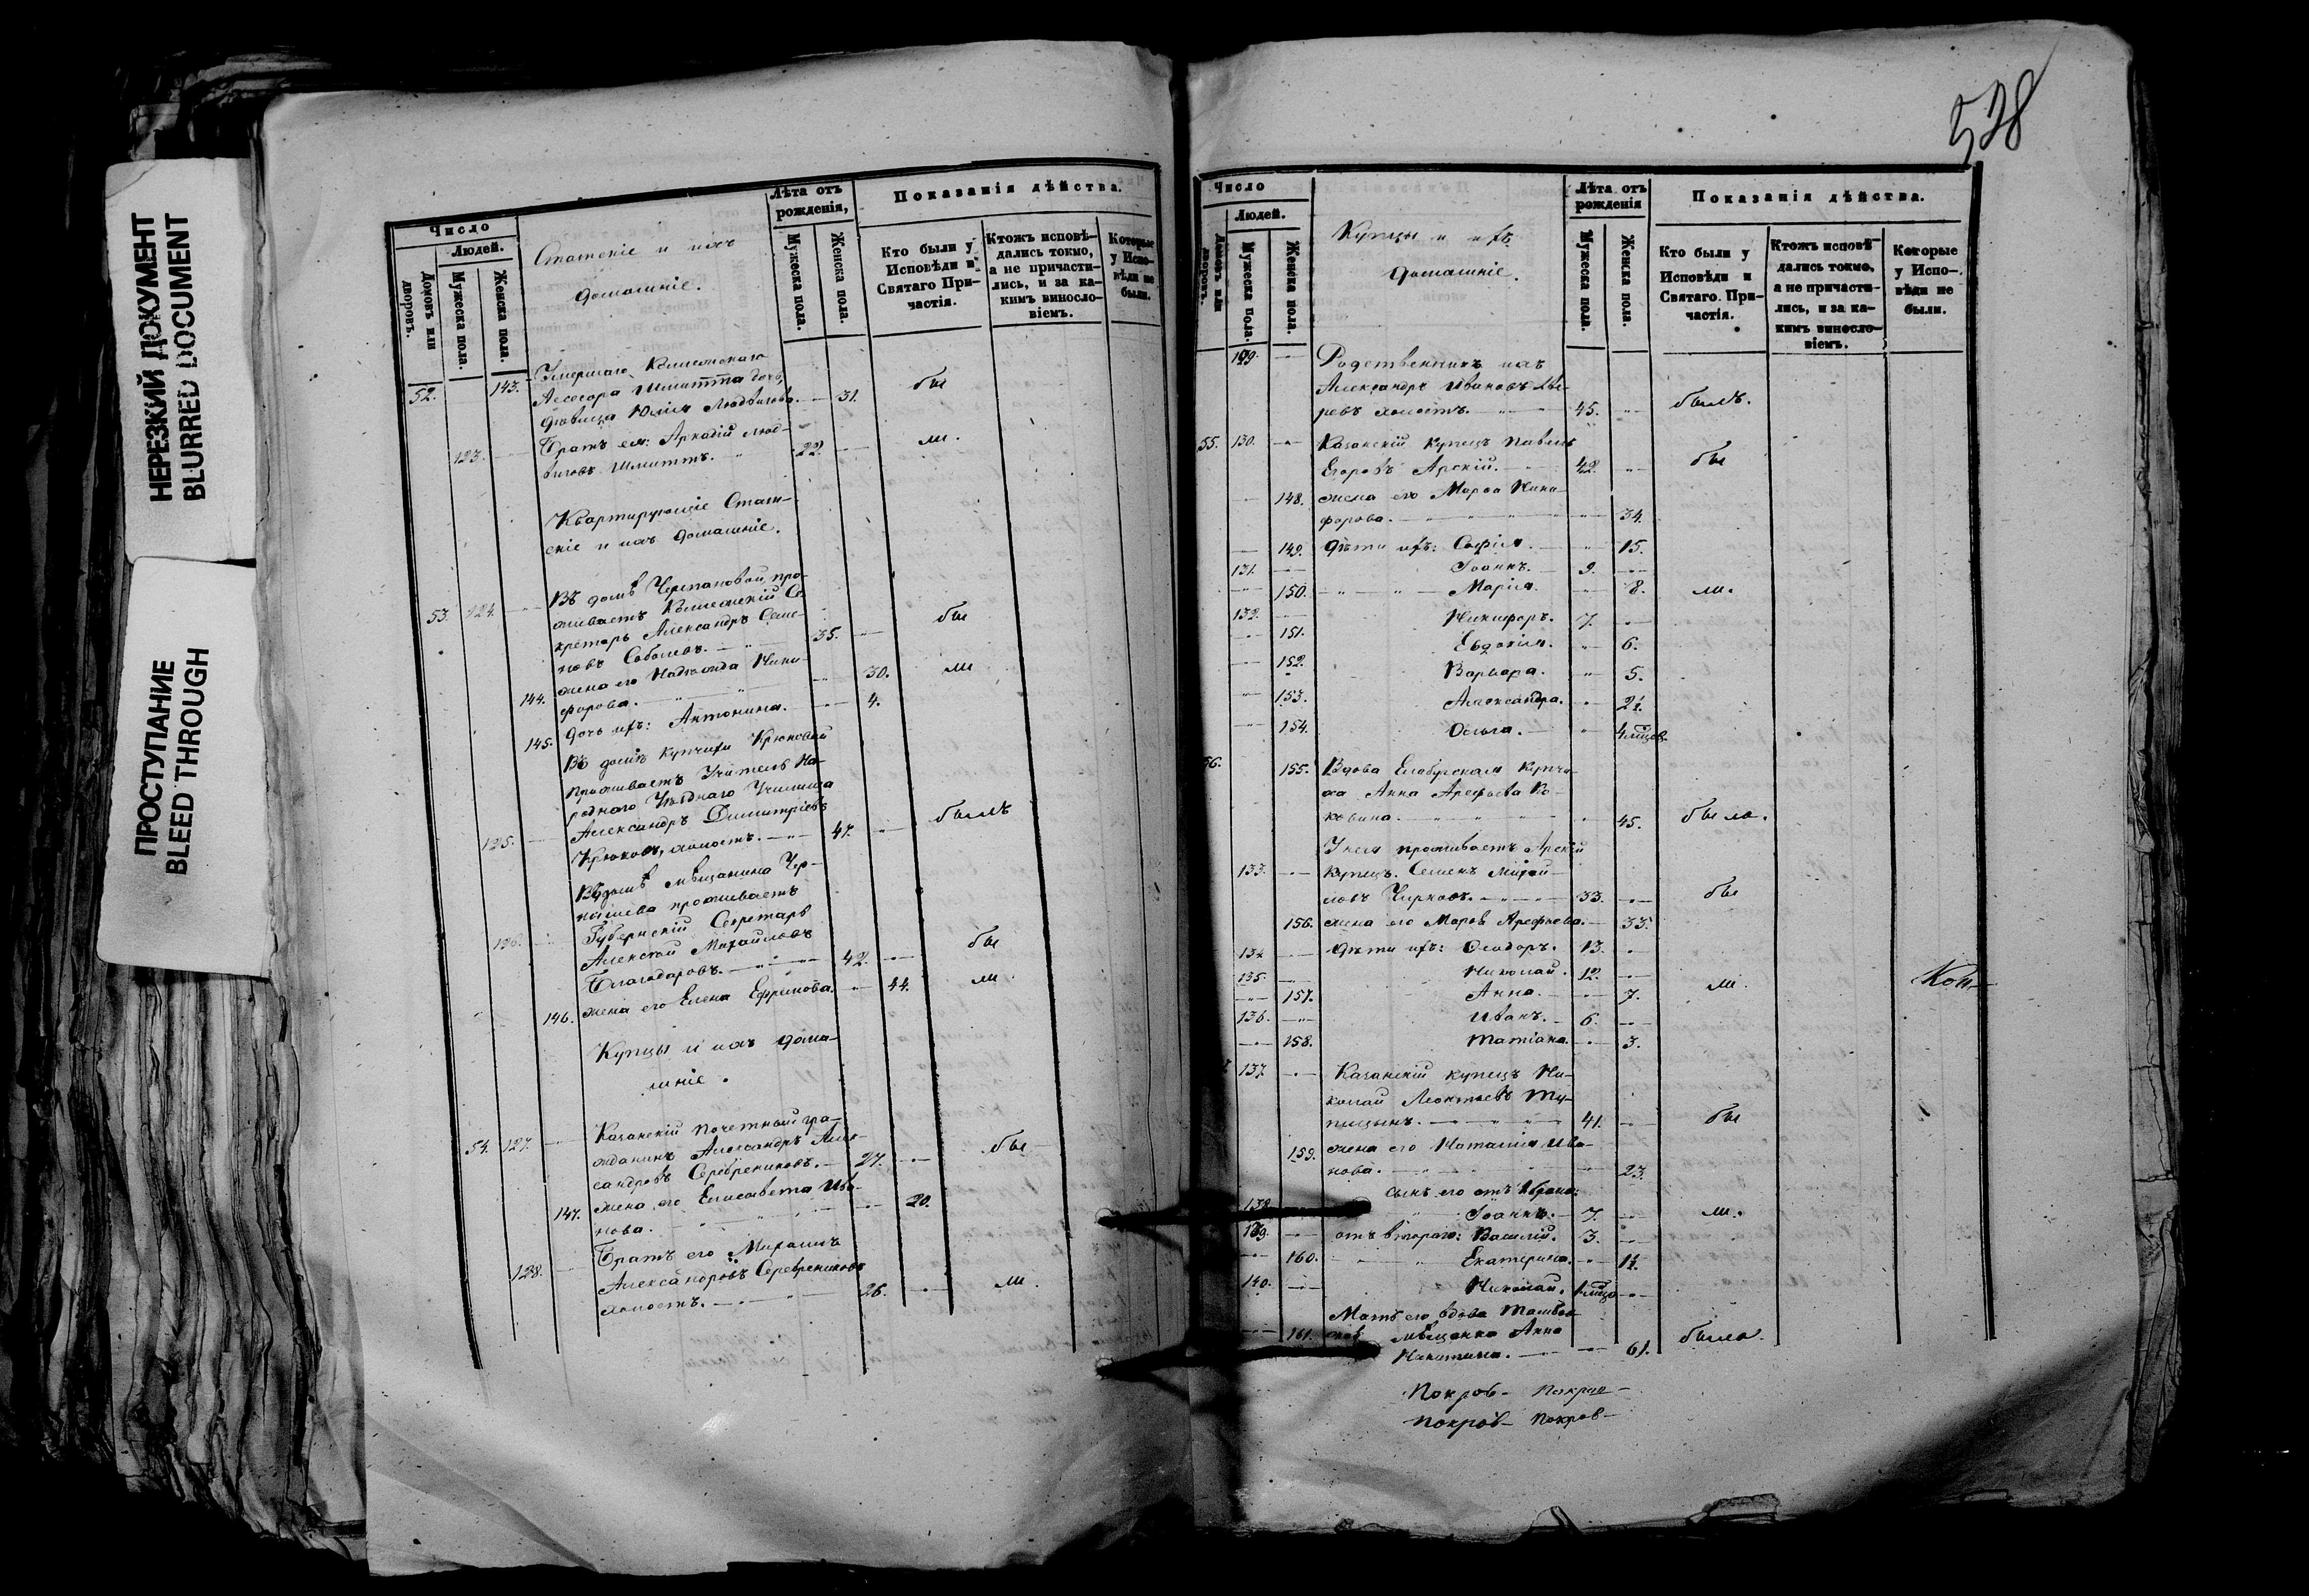 НЕРЕЗКИЙ ДОКУМЕНТ
BLURRED DOCUMENT
ПРОСТУПАНИЕ
BLEED THROUGH
Число
Людей.
Домовъ или дворовъ.
Мужеска пола.
Женска пола.
Статскіе и ихъ
домашніе.
Лѣта отъ
рожденія,
Мужеска пола.
Женска пола.
Показанія дѣйства.
Кто были у
Исповѣди и
Святаго При-
частія.
Ктожъ исповѣ-
дались токмо,
а не причасти-
лись, и за ка-
кимъ винosло-
віемъ.
Которые
у Испо-
вѣди не
были.
Умершаго Коллежскаго
52. 143. Асесора Шмитта дочь, бы
дѣвица Юлія Людвигова. 31.
Братъ ея: Аркадій Люд- ли.
123. виговъ Шмиттъ. 22.
Квартирующіе Стат-
скіе и ихъ домашніе.
Въ домѣ Черепановой про-
53. 124. живаетъ Коллежскій Се-
кретарь Александръ Семе- бы
новъ Соболевъ. 35.
жена его Надежда Ники- ли
144. форова. 30.
145. дочь ихъ: Антонина. 4.
Въ домѣ купчихи Крюковой
проживаетъ Учитель На-
роднаго Уѣзднаго Училища
Александръ Димитріевъ былъ
125. Крюковъ, холостъ. 47.
Въ домѣ мѣщанина Чер-
нышева проживаетъ
Губернскій Секретарь
126. Алексѣй Михайловъ бы
Благодаровъ. 42.
146. жена его Елена Ефимова. 44. ли
Купцы и ихъ дома-
шніе.
Казанскій почетный гра-
54. 127. жданинъ Александръ Алек- бы
сандровъ Серебрениковъ. 27.
147. жена его Елисавета Ива-
нова. 20.
Братъ его Михаилъ
128. Александровъ Серебрениковъ ли.
холостъ. 26.
528
Число
Людей.
Домовъ или дворовъ.
Мужеска пола.
Женска пола.
Купцы и ихъ
домашніе.
Лѣта отъ
рожденія
Мужеска пола.
Женска пола.
Показанія дѣйства.
Кто были у
Исповѣди и
Святаго При-
частія.
Ктожъ исповѣ-
дались токмо,
а не причасти-
лись, и за ка-
кимъ винosло-
віемъ.
Которые
у Испо-
вѣди не
были.
129. Родственникъ ихъ
Александръ Ивановъ
ревъ холостъ. 45. былъ.
55. 130. Казанскій купецъ Павелъ
Егоровъ Арскій. 42. бы
148. жена его Марѳа Ники-
форова. 34.
149. дѣти ихъ: Софія. 15.
131. Іоаннъ. 9.
150. Марія. 8. ли.
132. Никифоръ. 7.
151. Евдокія. 6.
152. Варвара. 5.
153. Александра. 2½.
154. Ольга. 4 мѣсяц.
56. 155. Вдова Елабужская купчи-
ха Анна Арефьева Ко-
ковина. 45. была.
У нея проживаетъ Арскій
133. купецъ Семенъ Михай-
ловъ Чирковъ. 33. бы
156. жена его Марѳа Арефьева. 33.
134. дѣти ихъ: Ѳеодоръ. 13.
135. Николай. 12.
157. Анна. 7. ли.
136. Иванъ. 6.
158. Татіана. 3.
Кои-
137. Казанскій купецъ Ни-
колай Леонтьевъ Ту-
пицынъ. 41. бы
159. жена его Наталія Ива-
нова. 23.
сынъ его отъ 1 брака:
138. Іоаннъ. 7. ли.
139. отъ втораго: Василій. 3.
160. Екатерина. 1½.
140. Николай.
Мать его вдова
161. мѣщанка Анна
Никитина. 61. была.
Покров- Покров-
Покров- Покров-